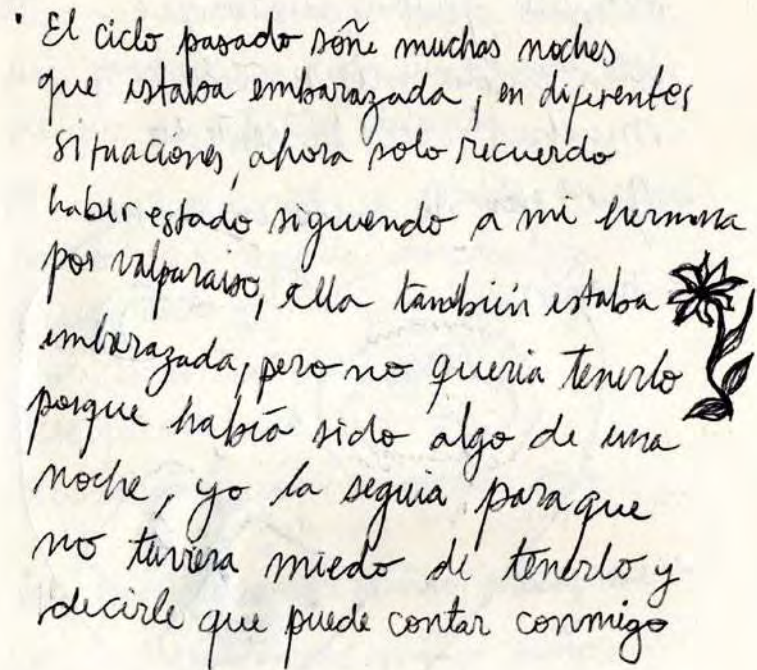 · El ciclo pasado soñe muchas noches
que estaba embarazada, en diferentes
situaciones, ahora solo recuerdo
haber estado siguiendo a mi hermana
por valparaiso, ella también estaba
embarazada, pero no queria tenerlo
porque había sido algo de una
noche, yo la seguia para que
no tuviera miedo de tenerlo y
decirle que puede contar conmigo